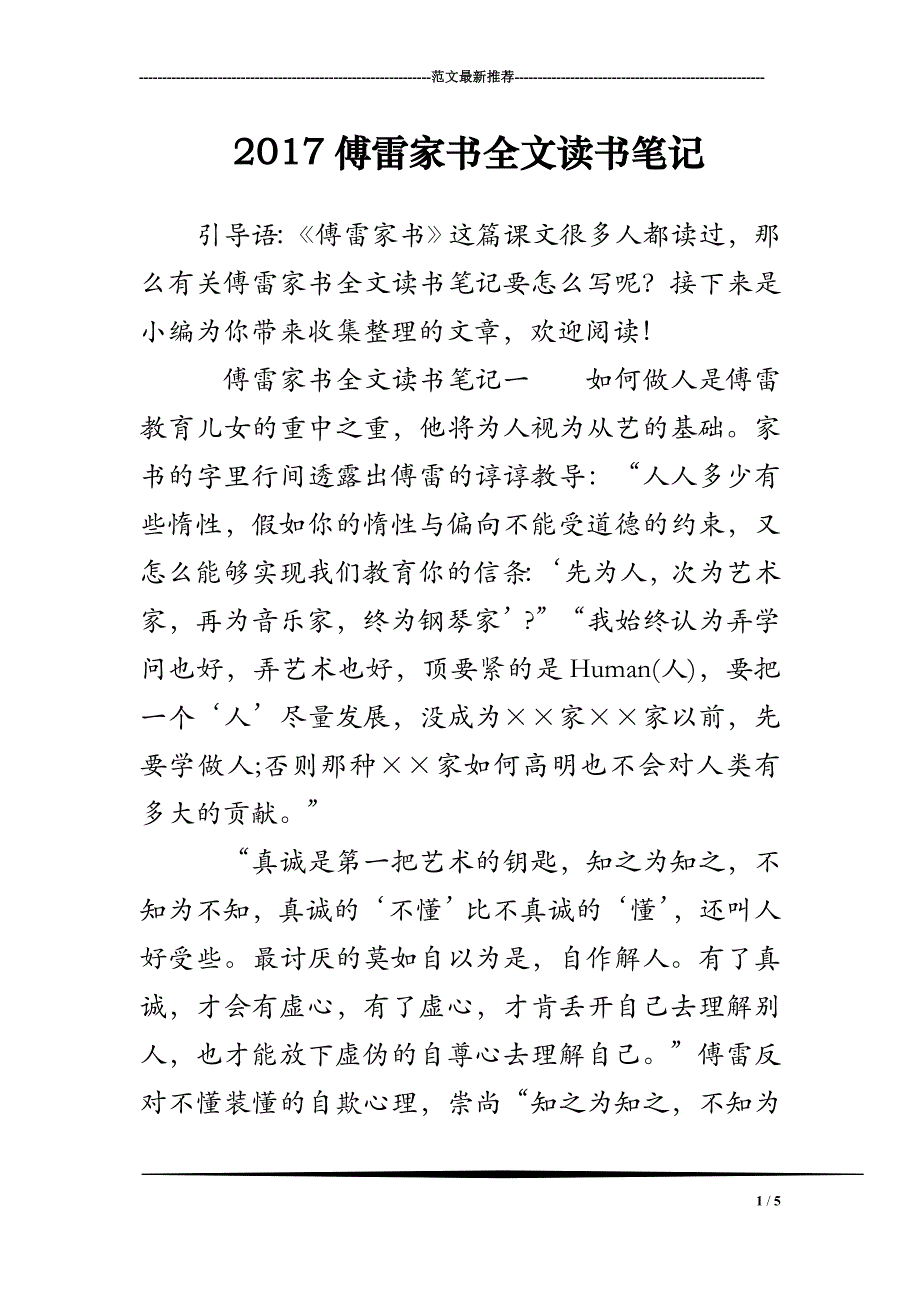 ---------------------------------------------------------------范文最新推荐------------------------------------------------------
2017傅雷家书全文读书笔记
引导语:《傅雷家书》这篇课文很多人都读过，那
么有关傅雷家书全文读书笔记要怎么写呢？接下来是
小编为你带来收集整理的文章，欢迎阅读!
傅雷家书全文读书笔记一　　如何做人是傅雷
教育儿女的重中之重，他将为人视为从艺的基础。家
书的字里行间透露出傅雷的谆谆教导：“人人多少有
些惰性，假如你的惰性与偏向不能受道德的约束，又
怎么能够实现我们教育你的信条:‘先为人，次为艺术
家，再为音乐家，终为钢琴家’?”“我始终认为弄学
问也好，弄艺术也好，顶要紧的是Human(人)，要把
一个‘人’尽量发展，没成为××家××家以前，先
要学做人;否则那种××家如何高明也不会对人类有
多大的贡献。”
“真诚是第一把艺术的钥匙，知之为知之，不
知为不知，真诚的‘不懂’比不真诚的‘懂’，还叫人
好受些。最讨厌的莫如自以为是，自作解人。有了真
诚，才会有虚心，有了虚心，才肯丢开自己去理解别
人，也才能放下虚伪的自尊心去理解自己。”傅雷反
对不懂装懂的自欺心理，崇尚“知之为知之，不知为
1 / 5